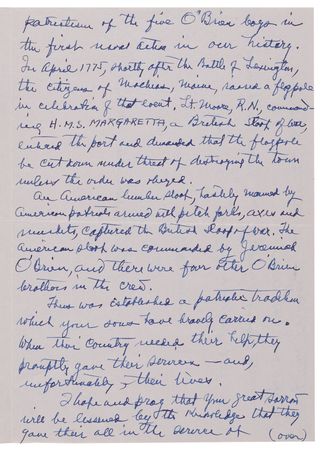 patriotism of the five O'Brien boys in
the first naval action in our history.
In April 1775, shortly after the Battle of Lexington,
the citizens of Machias, Maine, raised a flagpole
in celebration of that event. Lt. Moore, R.N., command-
ing H.M.S. MARGARETTA, a British sloop of war,
entered the port and demanded that the flagpole
be cut down under threat of destroying the town
unless the order was obeyed.
An American lumber sloop, hastily manned by
American patriots armed with pitch forks, axes and
muskets, captured the British sloop of war. The
American sloop was commanded by Jeremiah
O'Brien, and there were four other O'Brien
brothers in the crew.
Thus was established a patriotic tradition
which your sons have bravely carried on.
When their Country needed their help, they
promptly gave their services — and,
unfortunately, their lives.
I hope and pray that your great sorrow
will be lessened by the knowledge that they
gave their all in the service of
(over)